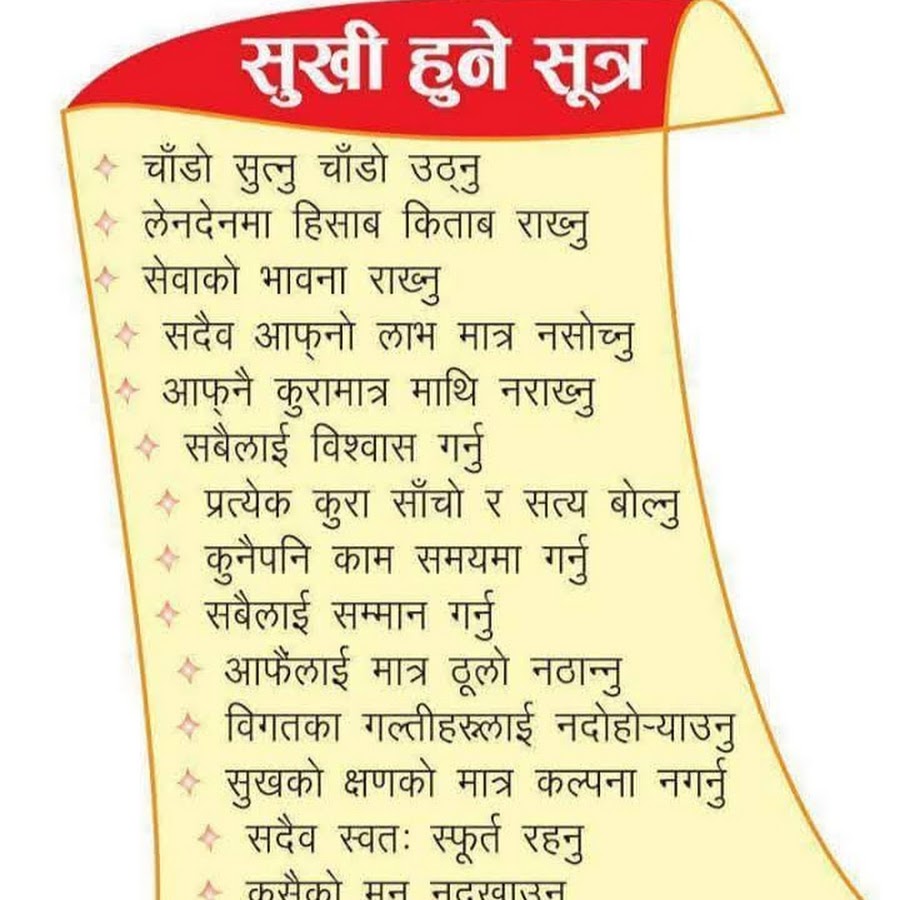 सुखी हुने सूत्र
चाँडो सुत्नु चाँडो उठ्नु
लेनदेनमा हिसाब किताब राख्नु
सेवाको भावना राख्नु
सदैव आफ्नो लाभ मात्र नसोच्नु
आफ्नै कुरामात्र माथि नराख्नु
सबैलाई विश्वास गर्नु
प्रत्येक कुरा साँचो र सत्य बोल्नु
कुनैपनि काम समयमा गर्नु
सबैलाई सम्मान गर्नु
आफैंलाई मात्र ठूलो नठान्नु
विगतका गल्तीहरूलाई नदोहोऱ्याउनु
सुखको क्षणको मात्र कल्पना नगर्नु
सदैव स्वतः स्फूर्त रहनु
कसैको मन